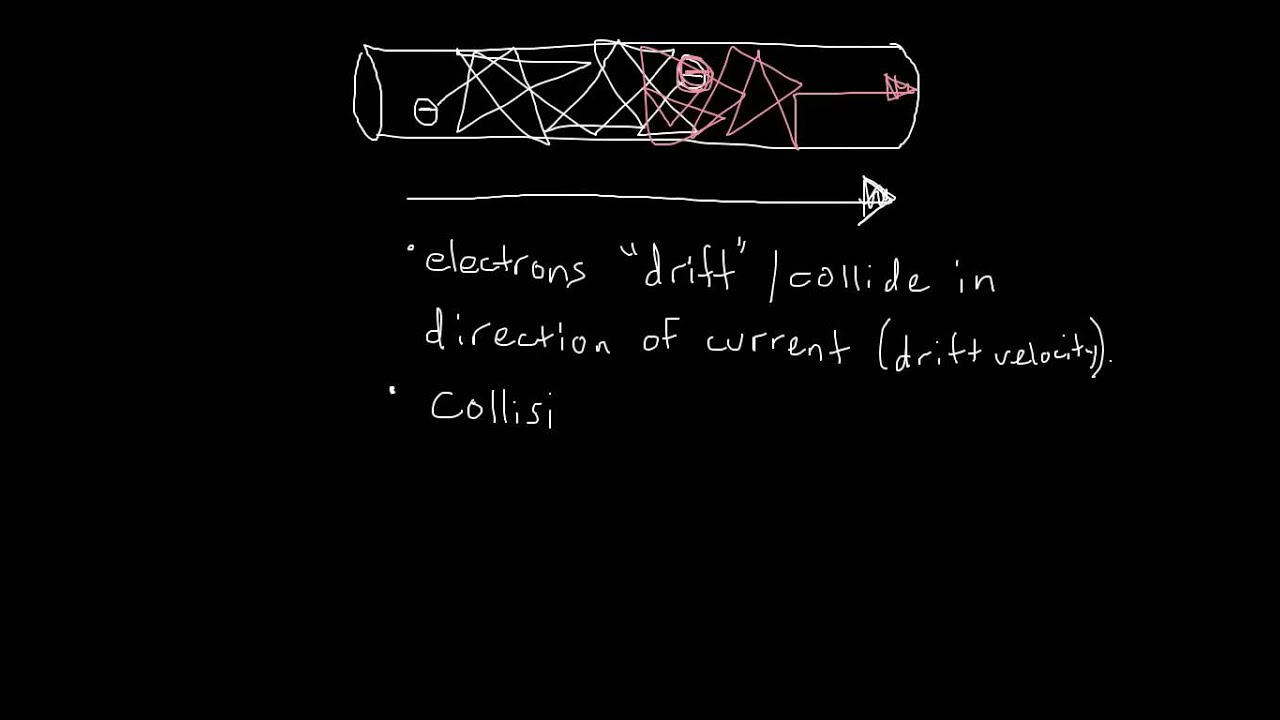 • electrons "drift" / collide in
direction of current (drift velocity).
• Collisi